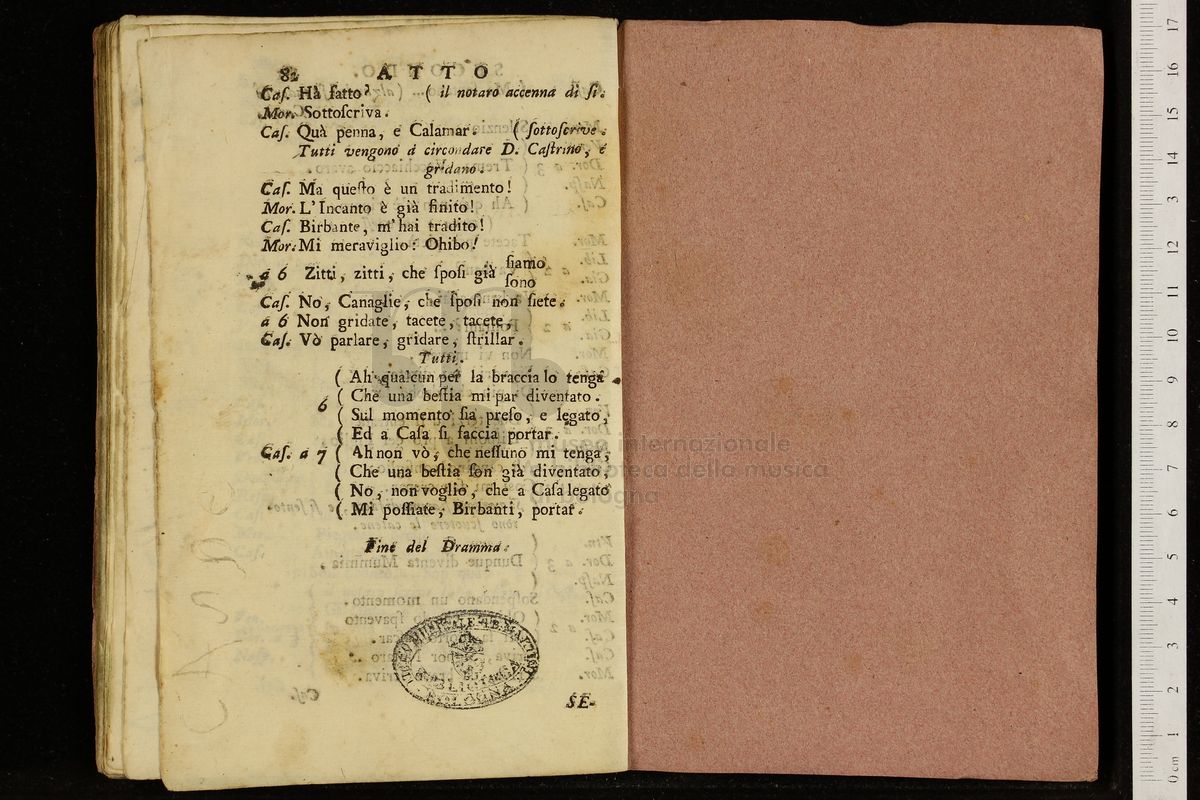 82 ATTO
Caſ. Hà fatto? ( il notaro accenna di ſi.
Mor. Sottoſcriva.
Caſ. Quà penna, e Calamar. ( ſottoſcrive.
Tutti vengono à circondare D. Caſtrino, e
gridano.
Caſ. Ma queſto è un tradimento!
Mor. L'Incanto è già finito!
Caſ. Birbante, m'hai tradito!
Mor. Mi meraviglio! Ohibo!
à 6 Zitti, zitti, che ſpoſi già ſiamo
ſono
Caſ. No, Canaglie, che ſpoſi non ſiete.
à 6 Non gridate, tacete, tacete,
Caſ. Vò parlare, gridare, ſtrillar.
Tutti.
( Ah qualcun per la braccia lo tenga
( Che una beſtia mi par diventato.
6
( Sul momento ſia preſo, e legato,
( Ed a Caſa ſi faccia portar.
Caſ. a 7 ( Ah non vò, che neſſuno mi tenga,
( Che una beſtia ſon già diventato,
( No, non voglio, che a Caſa legato
( Mi poſſiate, Birbanti, portar.
Fine del Dramma.
SE-
museo internazionale
e biblioteca della musica
di bologna
0 cm 1 2 3 4 5 6 7 8 9 10 11 12 13 14 15 16 17